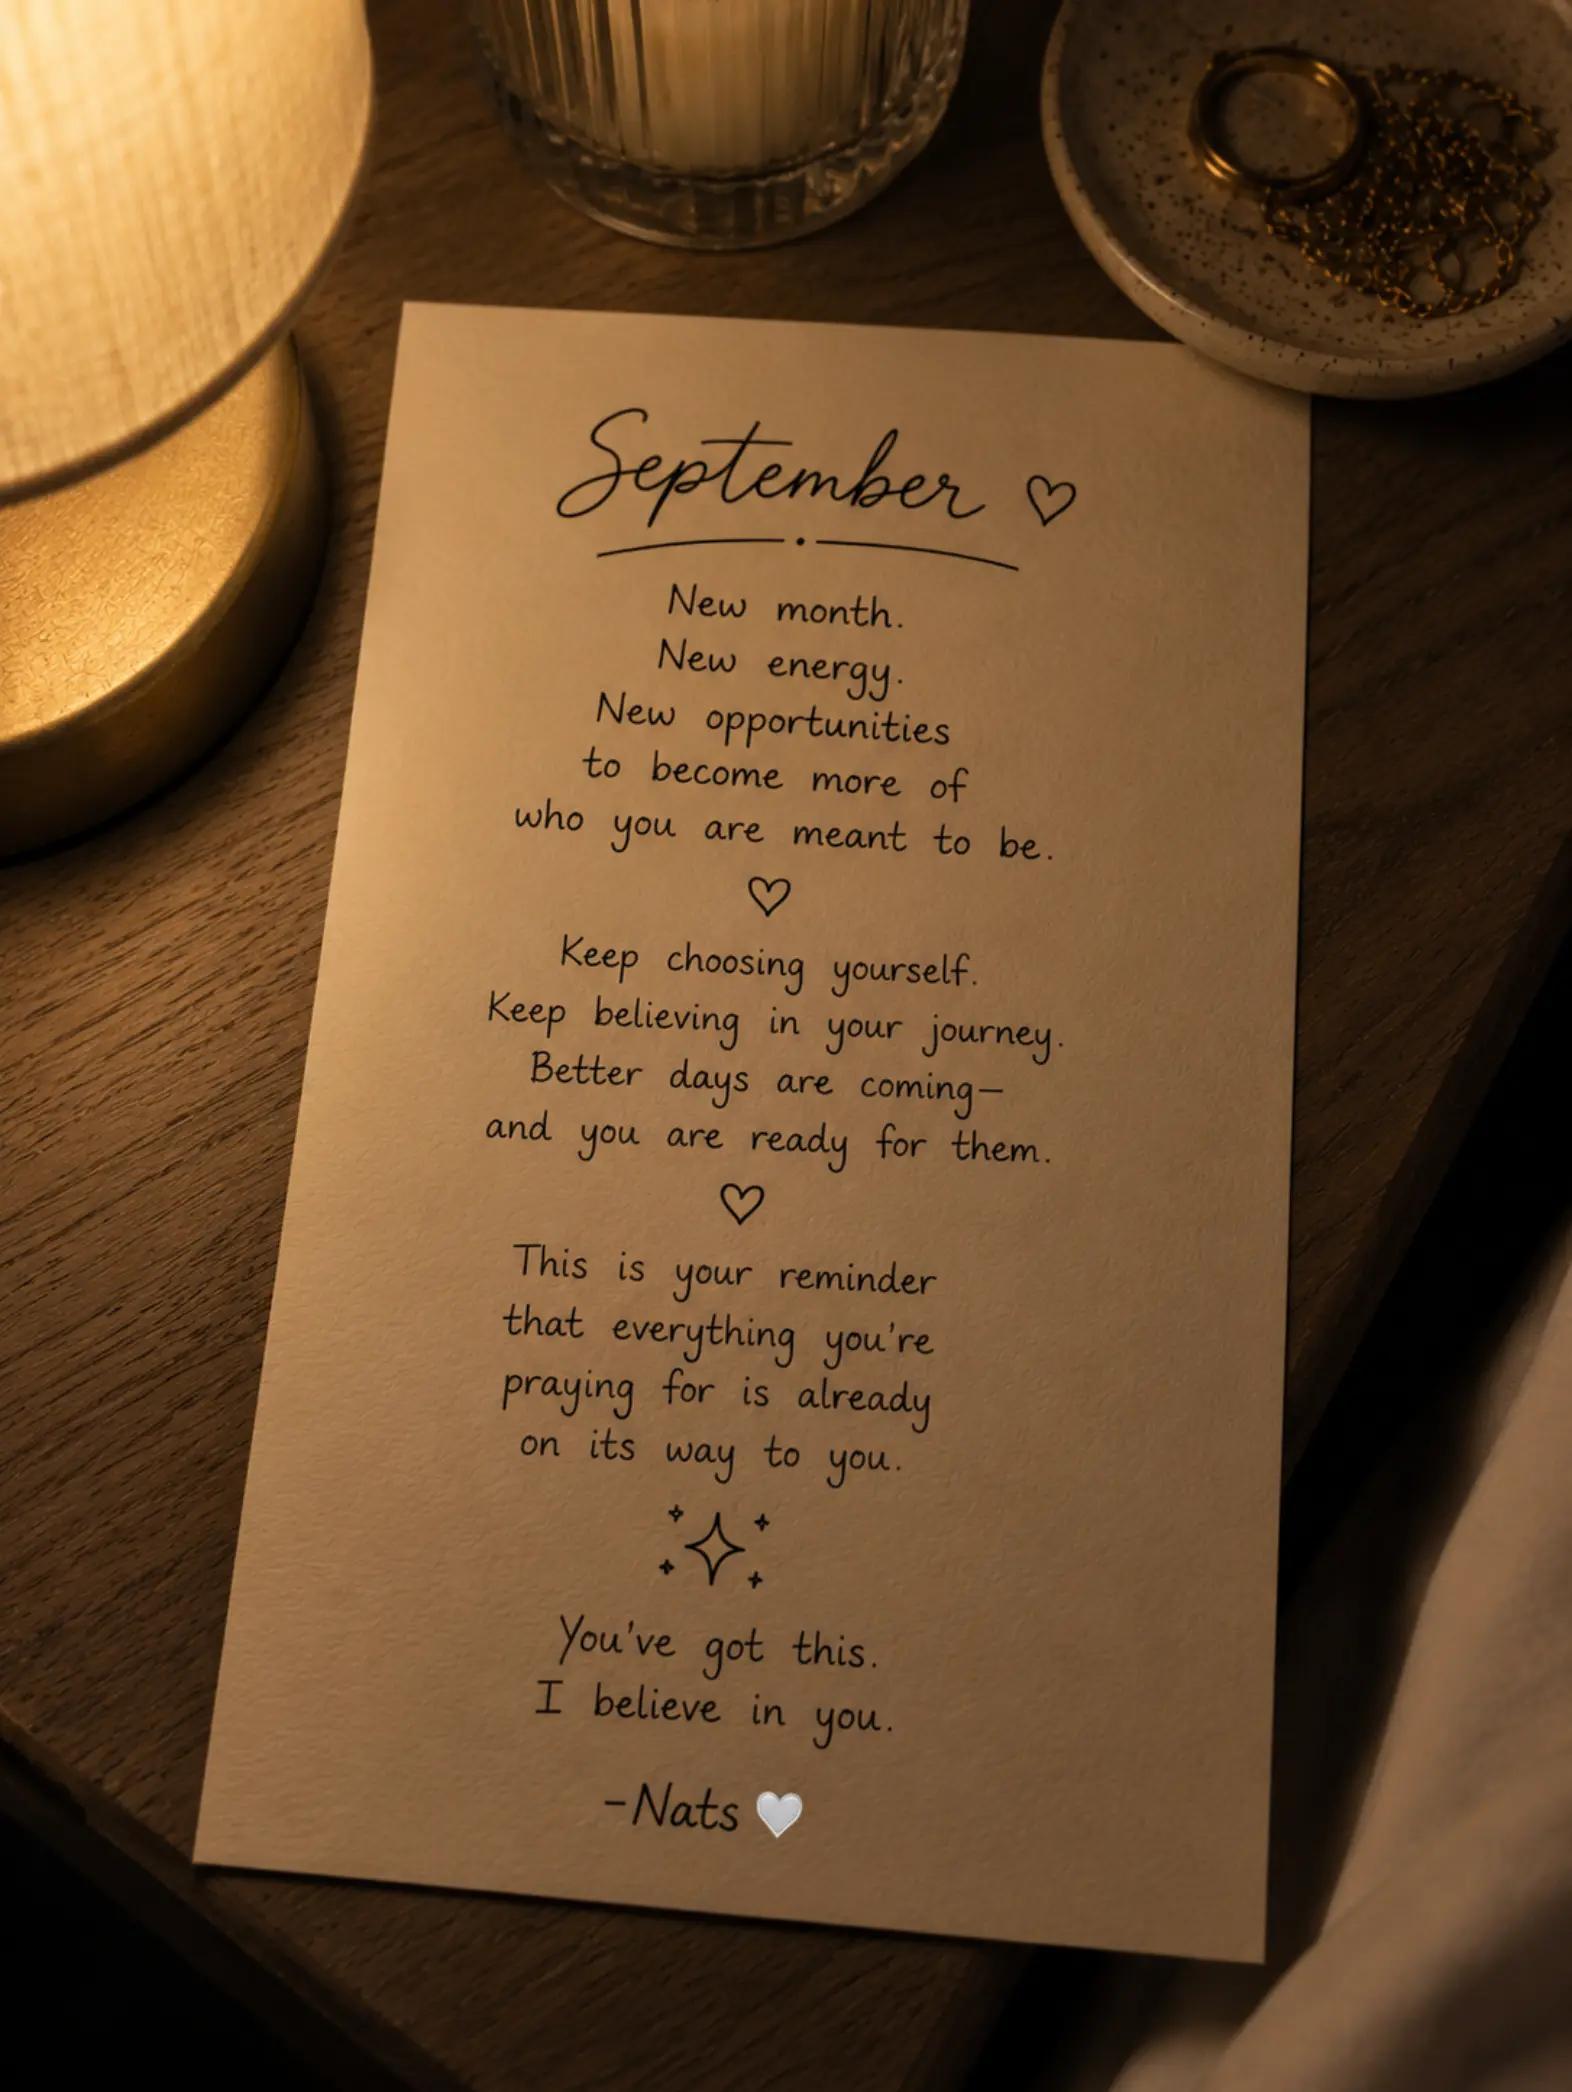 September ♡
New month.
New energy.
New opportunities
to become more of
who you are meant to be.
♡
Keep choosing yourself.
Keep believing in your journey.
Better days are coming—
and you are ready for them.
♡
This is your reminder
that everything you're
praying for is already
on its way to you.
You've got this.
I believe in you.
-Nats 🤍